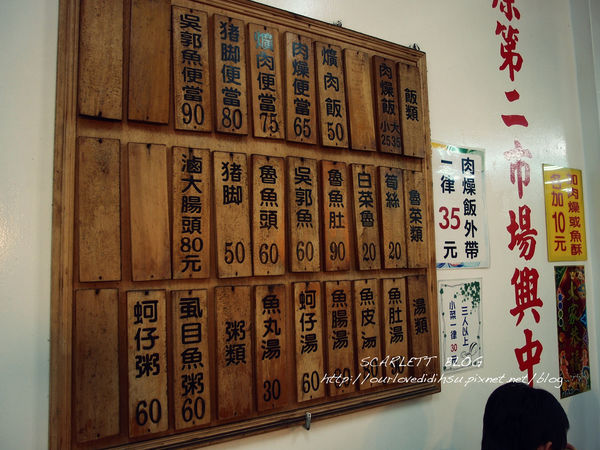 飯類
肉燥飯 大35 小25
爌肉飯 50
肉燥便當 65
爌肉便當 75
猪脚便當 80
吳郭魚便當 90
魯菜類
筍絲 20
白菜魯 20
魯魚肚 90
吳郭魚 60
魯魚頭 60
猪脚 50
滷大腸頭 80元
湯類
魚肚湯
魚皮湯
魚腸湯
蚵仔湯 60
魚丸湯 30
粥類
虱目魚粥 60
蚵仔粥 60
第二市場興中
肉燥飯外帶
一律35元
三人以上
小菜一律30
肉燥或魚酥
加10元
SCARLETT BLOG
http://ourlovedidinsu.pixnet.net/blog